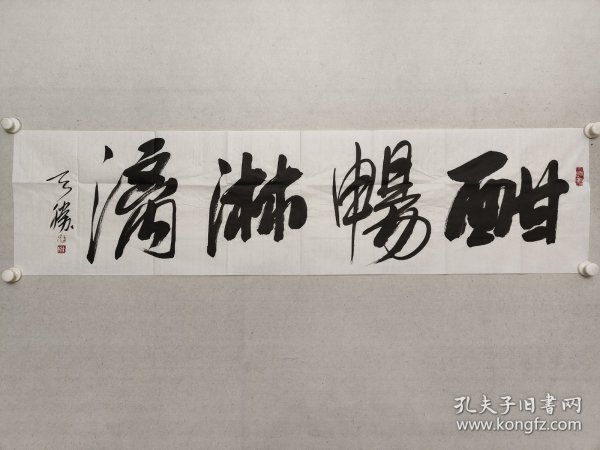 酣暢淋漓
孔夫子旧書网
www.kongfz.com